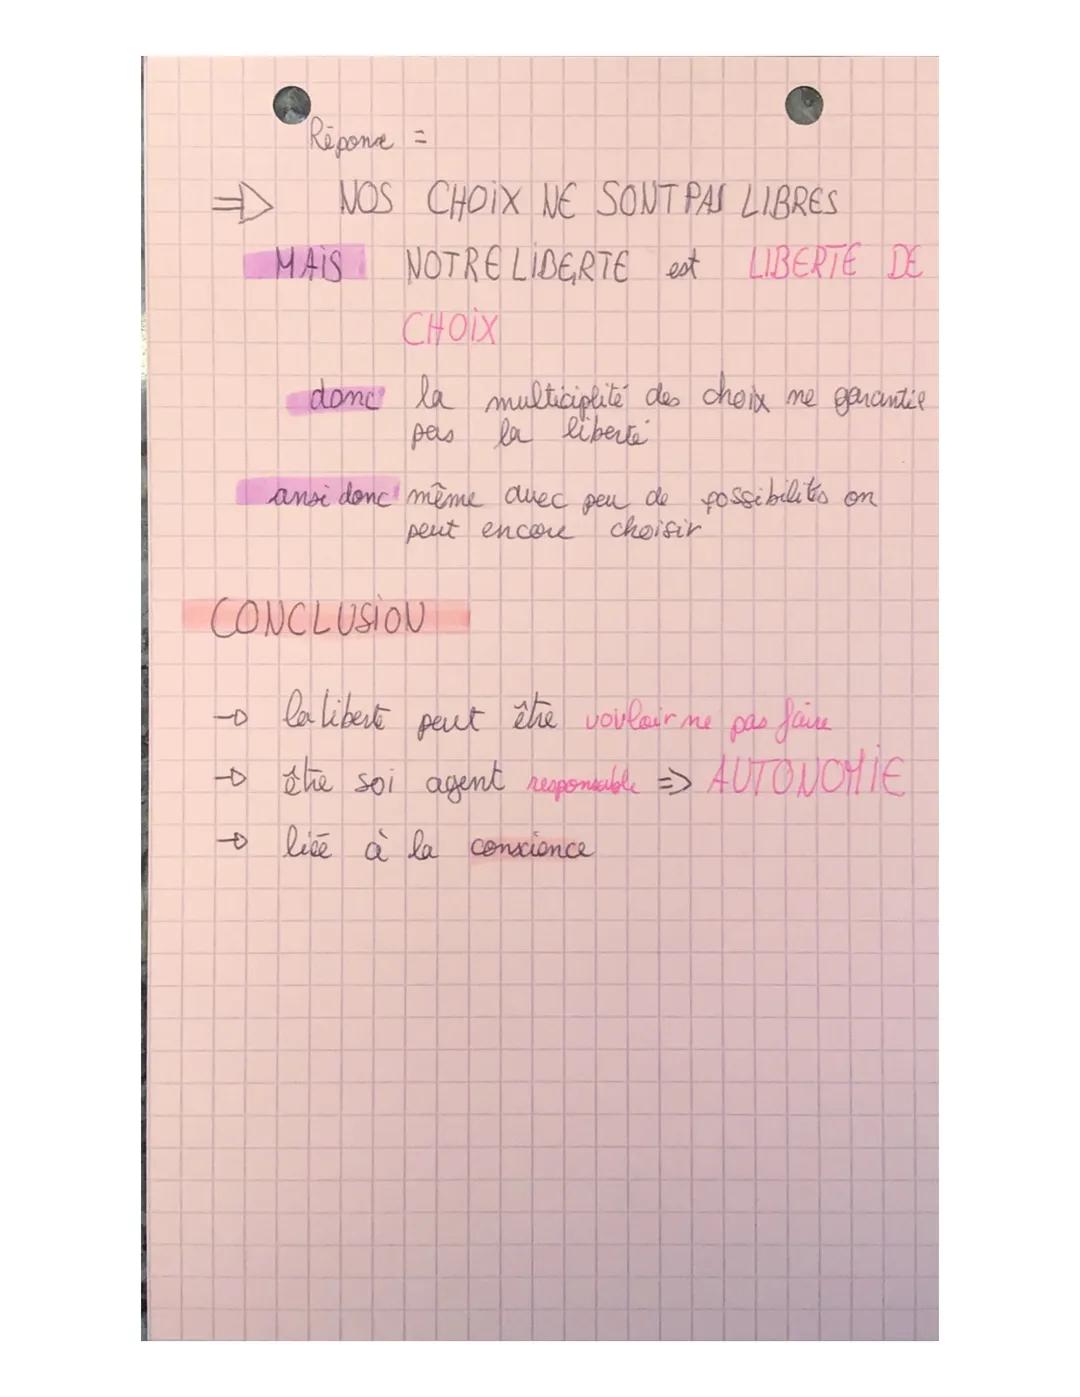 Réponse =
=> NOS CHOIX NE SONT PAS LIBRES
MAIS NOTRE LIBERTE est LIBERTE DE
CHOIX
donc la multiciplité des choix ne garantie
pas la liberté
ansi donc même avec peu de possibilités on
peut encore choisir
CONCLUSION
→ la liberté peut être vouloir ne pas faire
→ être soi agent responsable => AUTONOMIE
→ liée à la conscience